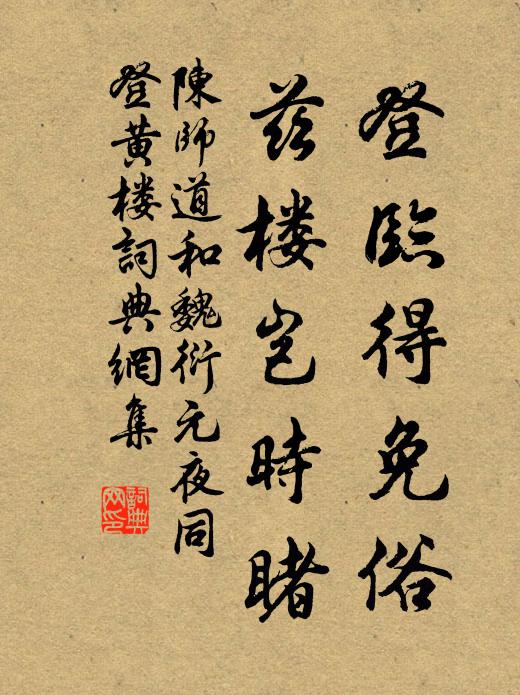 登臨得免俗
茲楼岂時睹
陳師道和魏衍元夜同
登黄楼詞典網集
詞典
网印